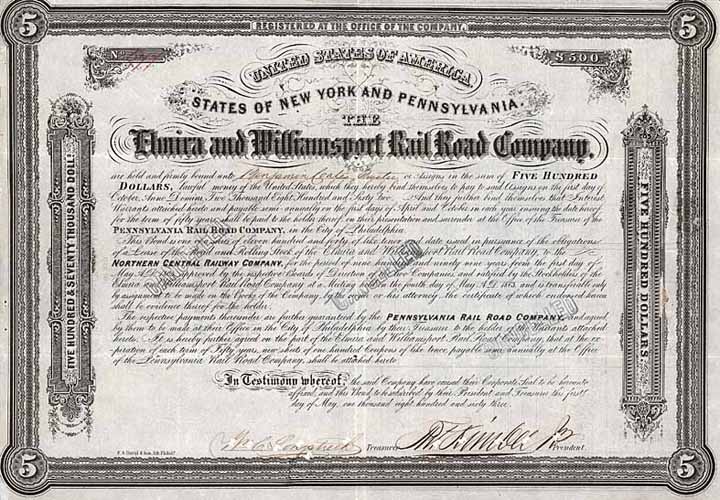 5
REGISTERED AT THE OFFICE OF THE COMPANY.
5
No.
$500
UNITED STATES OF AMERICA
STATES OF NEW YORK AND PENNSYLVANIA.
THE
Elmira and Williamsport Rail Road Company,
are held and firmly bound unto Benjamin Trustee or Assigns in the sum of FIVE HUNDRED
DOLLARS, lawful money of the United States, which they hereby bind themselves to pay to said Assigns on the first day of
October Anno Domini Two Thousand Eight Hundred and Sixty Two. And they further bind themselves that Interest
Warrants attached hereto and payable semi-annually on the first days of April and October in each year ensuing the date hereof
for the term of fifty years shall be paid to the holder thereof on their presentation and surrender at the Office of the Treasurer of the
PENNSYLVANIA RAIL ROAD COMPANY, in the City of Philadelphia.
This Bond is one of a series of eleven hundred and forty of like tenor and date issued in pursuance of the obligations
of a Lease of the Road and Rolling Stock of the Elmira and Williamsport Rail Road Company, to the
NORTHERN CENTRAL RAILWAY COMPANY, for the period of nine hundred and ninety nine years from the first day of
May, A.D. approved by the respective Boards of Direction of the Companies, and ratified by the Stockholders of the
Elmira and Williamsport Rail Road Company at a Meeting held on the fourth day of May A.D. 1863, and is transferable only
by assignment to be made on the Books of the Company by or his attorney, the certificate of which endorsed hereon
shall be evidence thereof to the holder.
The respective payments thereunder are further guaranteed by the PENNSYLVANIA RAIL ROAD COMPANY, and agreed
by them to be made at their Office in the City of Philadelphia by their Treasurer to the holder of Warrants attached
hereto. It is hereby further agreed on the part of the Elmira and Williamsport Rail Road Company, that at the ex-
piration of each term of Fifty years, new sheets of one hundred Coupons of like tenor, payable semi-annually at the Office
of the Pennsylvania Rail Road Company, shall be attached hereto.
In Testimony whereof, the said Company have caused their Corporate Seal to be hereunto
affixed, and this Bond to be subscribed by their President and Treasurer this first
day of May, one thousand eight hundred and sixty three.
Treasurer
President.
FIVE HUNDRED & SEVENTY THOUSAND DOLL.
FIVE HUNDRED DOLLARS
CANCELLED
5
5